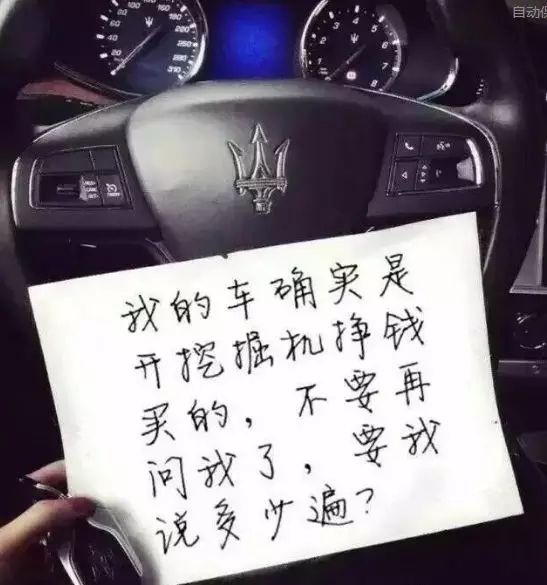 自动保
我的车确实是
开挖掘机挣钱
买的，不要再
问我了，要我
说多少遍？